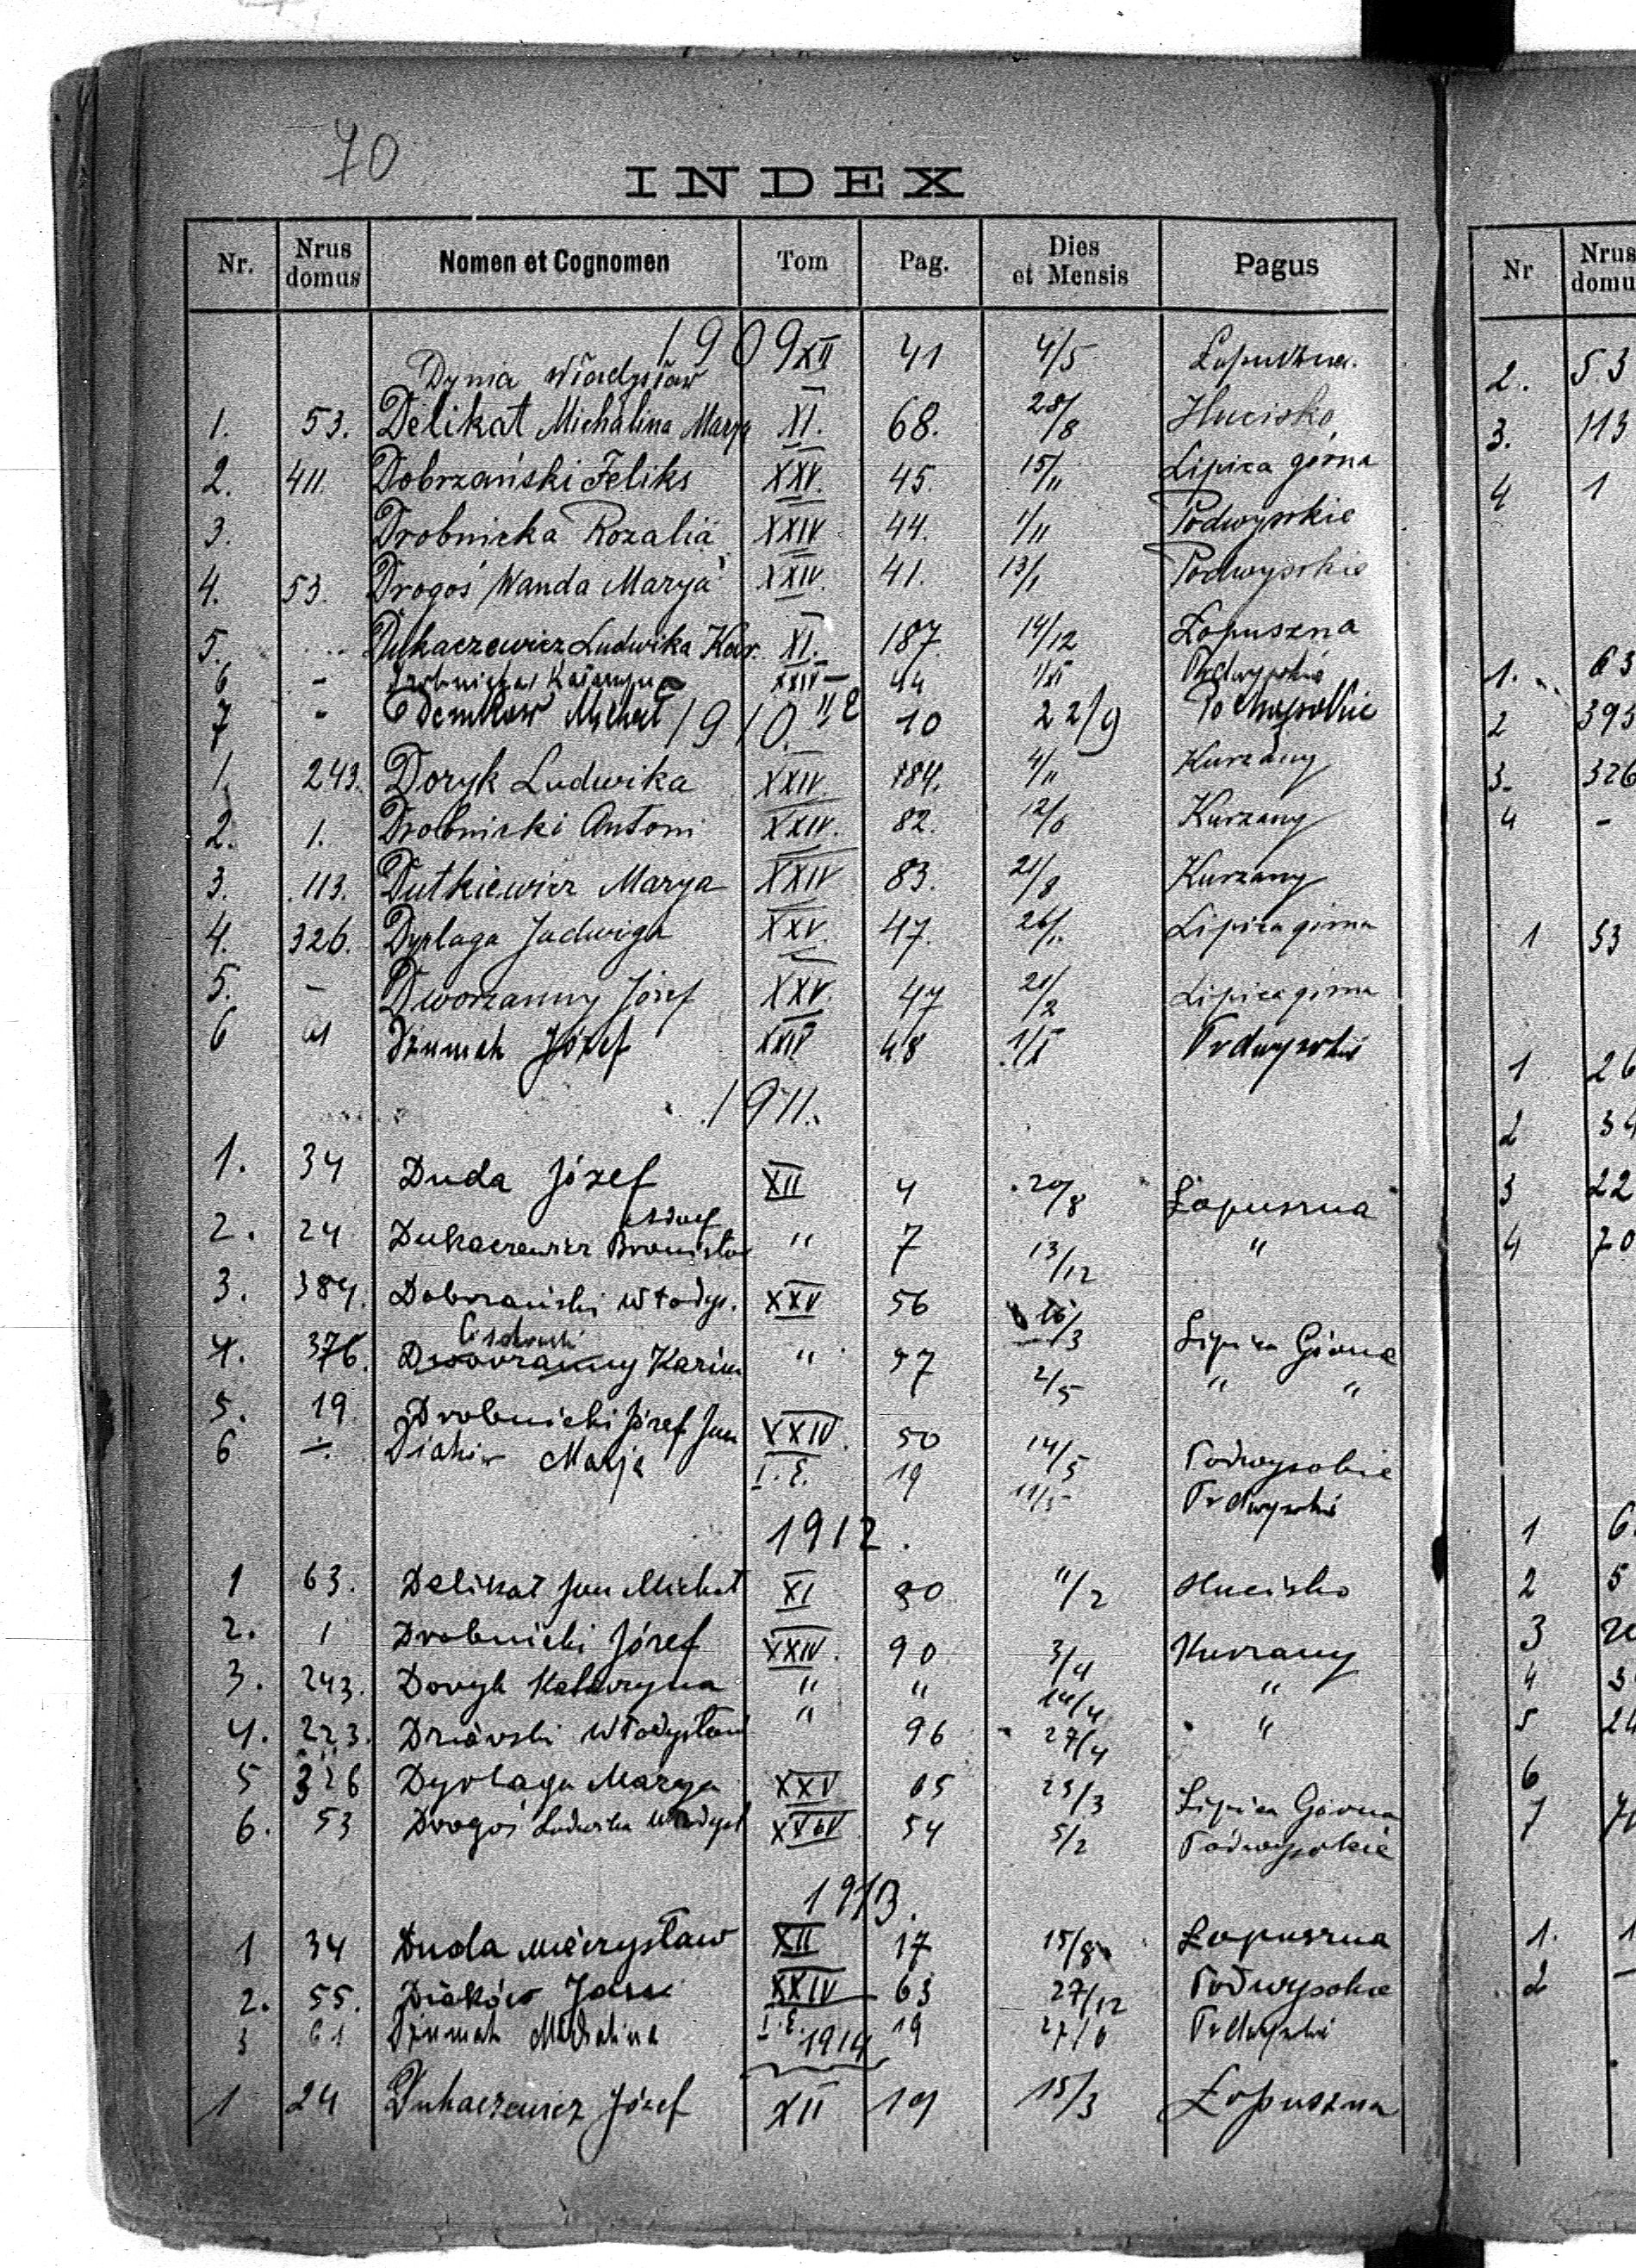 70
INDEX
Nr. Nrus domus Nomen et Cognomen Tom Pag. Dies et Mensis Pagus
1909
Dynia Władysław XII 41 4/5 Łopuszna.
1. 53. Delikat Michalina Marya XI. 68. 28/8 Hucisko
2. 411. Dobrzański Feliks XXV. 45. 15/11 Lipica górna
3. Drobnicka Rozalia XXIV 44. 1/11 Podwysokie
4. 53. Drogoś Wanda Marya XXIV. 41. 13/1 Podwysokie
5. Dukaczewicz Ludwika Kar. XI. 187. 14/12 Łopuszna
6 - Drobnicka Katarzyna XXIV 44 1/XI Podwysokie
7 - Demków Michał 10 22/9 Podwysokie
1910.
1. 243. Doryk Ludwika XXIV. 184. 4/11 Kurzany
2. 1. Drobnicki Antoni XXIV. 82. 12/6 Kurzany
3. 113. Dutkiewicz Marya XXIV 83. 21/8 Kurzany
4. 326. Dyrlaga Jadwiga XXV. 47. 26/1. Lipica górna
5. - Dworzanny Józef XXV. 47 21/2 Lipica górna
6 Dżumak Józef XXIV 48 1/X Podwysokie
1911.
1. 34 Duda Józef XII 4 20/8 Łopuszna
2. 24 Dukaczewicz Bronisław Adolf " 7 13/12 "
3. 384. Dobrzański Władys. XXV 56 16/3 Lipica Górna
4. 376. Dworzanny Kazim " 57 2/5 " "
5. 19 Drobnicki Józef Jan XXIV. 50 14/5 Podwysokie
6 -. Diakiw Marja I. E. 19 11/5 Podwysokie
1912.
1 63. Delikat Jan Michał XI 80 11/2 Hucisko
2. 1 Drobnicki Józef XXIV. 90 3/4 Kurzany
3. 243. Doryk Katarzyna " " 14/4 "
4. 223. Dziórski Władysław " 96 27/4 "
5 326 Dyrlaga Marya XXV 65 25/3 Lipica Górna
6. 53 Drogoś Ludwika Władysł XXIV 54 5/2 Podwysokie
1913.
1 34 Duda Mieczysław XII 17 15/8 Łopuszna
2. 55. Diaków Jan XXIV 63 27/12 Podwysokie
3 61 Dżumak Michalina I. E. 19 27/6 Podwysokie
1914
1 24 Dukaczewicz Józef XII 19 15/3 Łopuszna
Nr Nrus domu
2. 53
3. 113
4 1
1. 63
2 393
3. 326
4 -
1 53
1 26
2 34
3 22
4 70
1 6
2 5
3
4 3
5 24
6
7 7
1. 1
2 -